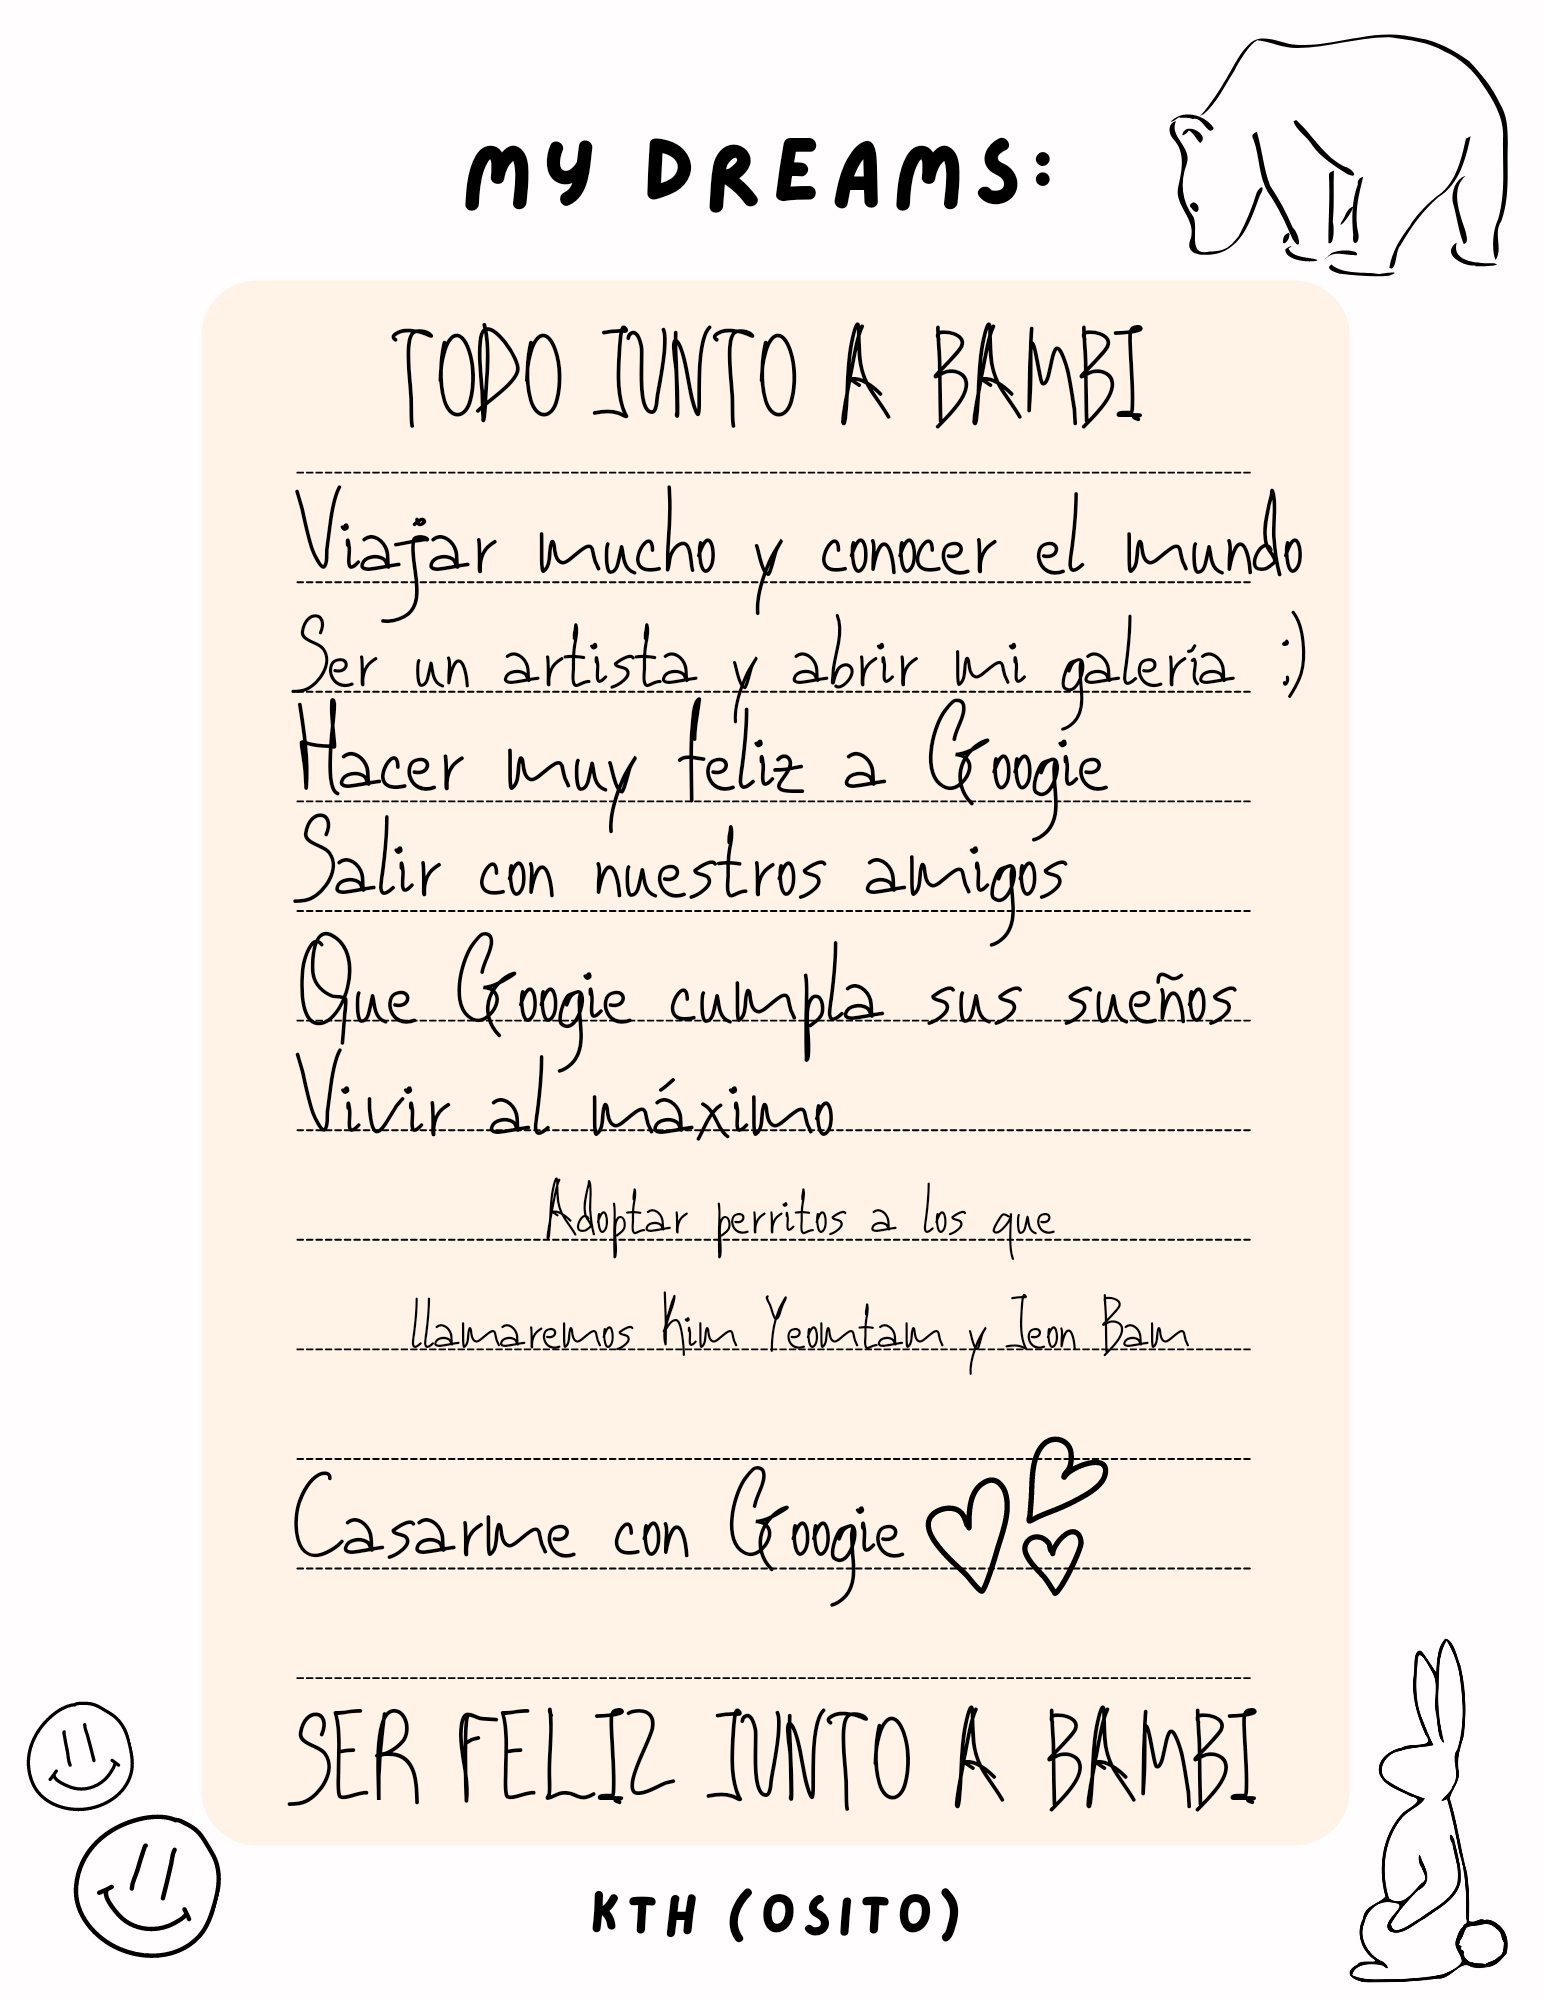 MY DREAMS:
TODO JUNTO A BAMBI
Viajar mucho y conocer el mundo
Ser un artista y abrir mi galería :)
Hacer muy feliz a Googie
Salir con nuestros amigos
Que Googie cumpla sus sueños
Vivir al máximo
Adoptar perritos a los que
llamaremos Kim Yeomtam y Jeon Bam
Casarme con Googie
SER FELIZ JUNTO A BAMBI
KTH (OSITO)